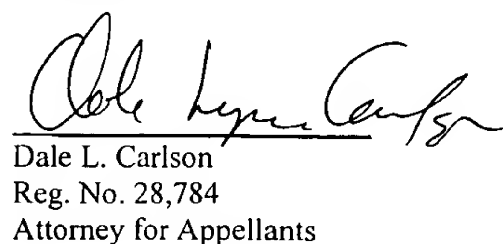 Dale Lynn Carlson
Dale L. Carlson
Reg. No. 28,784
Attorney for Appellants